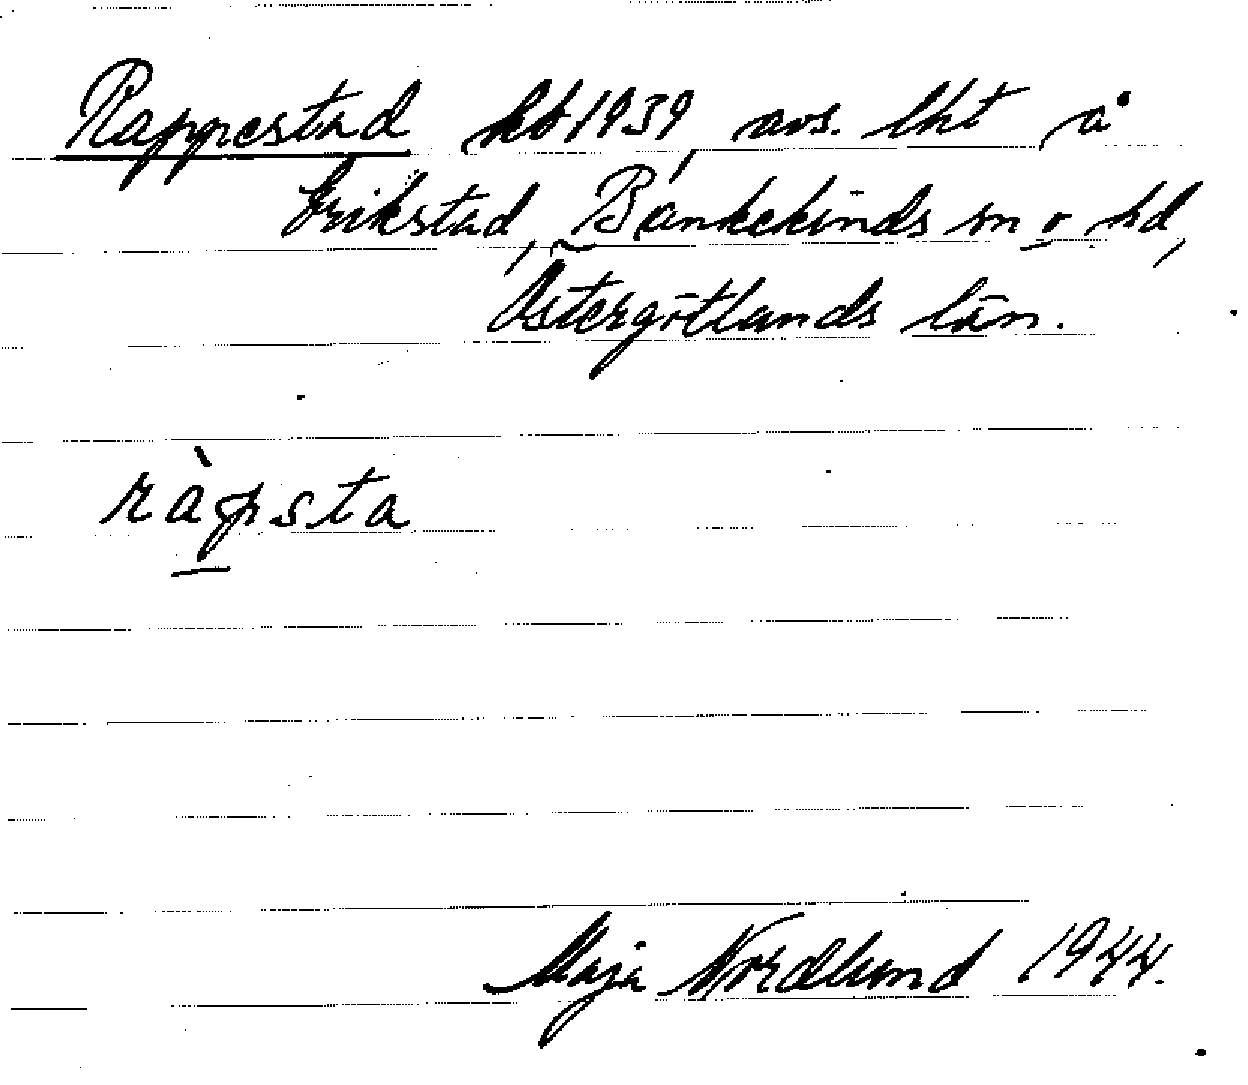 Rappestad hb 1939, avs. lht å
Erikstad, Bankekinds sn o. hd,
Östergötlands län.
ràpsta
Maja Nordlund 1944.